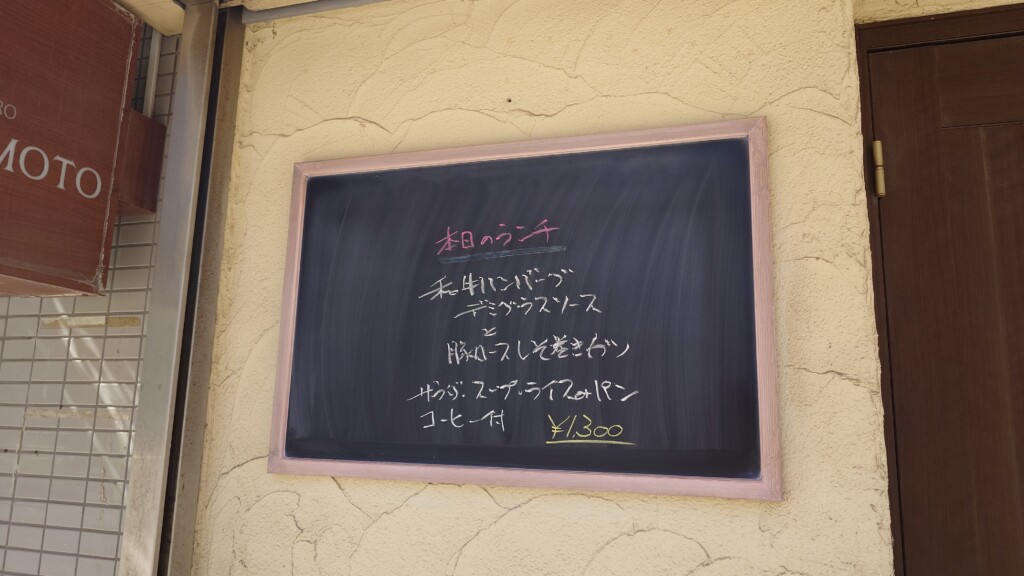 RO
MOTO
本日のランチ
和牛ハンバーグ
デミグラスソース
と
豚ロースしそ巻きカツ
サラダ・スープ・ライスorパン
コーヒー付
¥1300